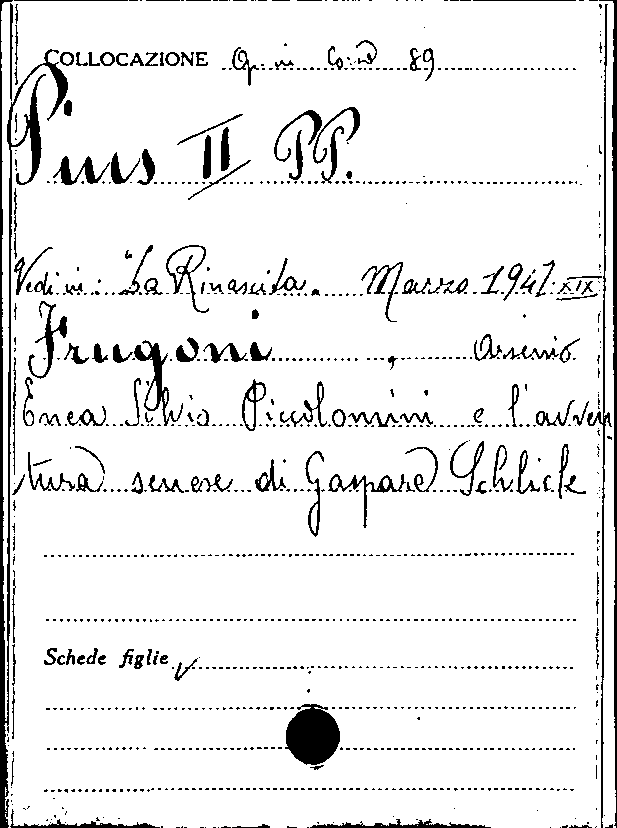 COLLOCAZIONE Op. in Co: 89
Pius II PP.
Vedi in: "La Rinascita. Marzo 1941. XIX
Frugoni, Arsenio
Enea Silvio Piccolomini e l'avven
tura senese di Gaspare Schlick
Schede figlie